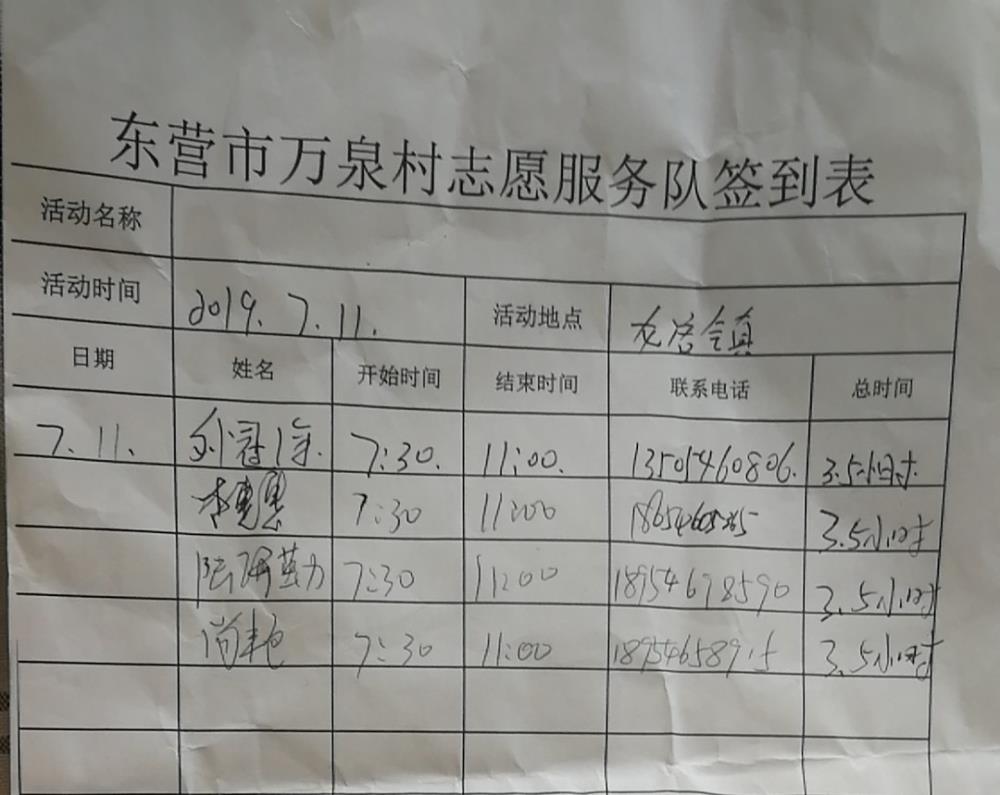 东营市万泉村志愿服务队签到表
活动名称
活动时间 2019.7.11. 活动地点
日期 姓名 开始时间 结束时间 联系电话 总时间
7.11. 7:30. 11:00. 13505460806. 3.5小时.
7:30 11:00 3.5小时
7:30 11:00 18954678590 3.5小时
尚艳 7:30 11:00 3.5小时